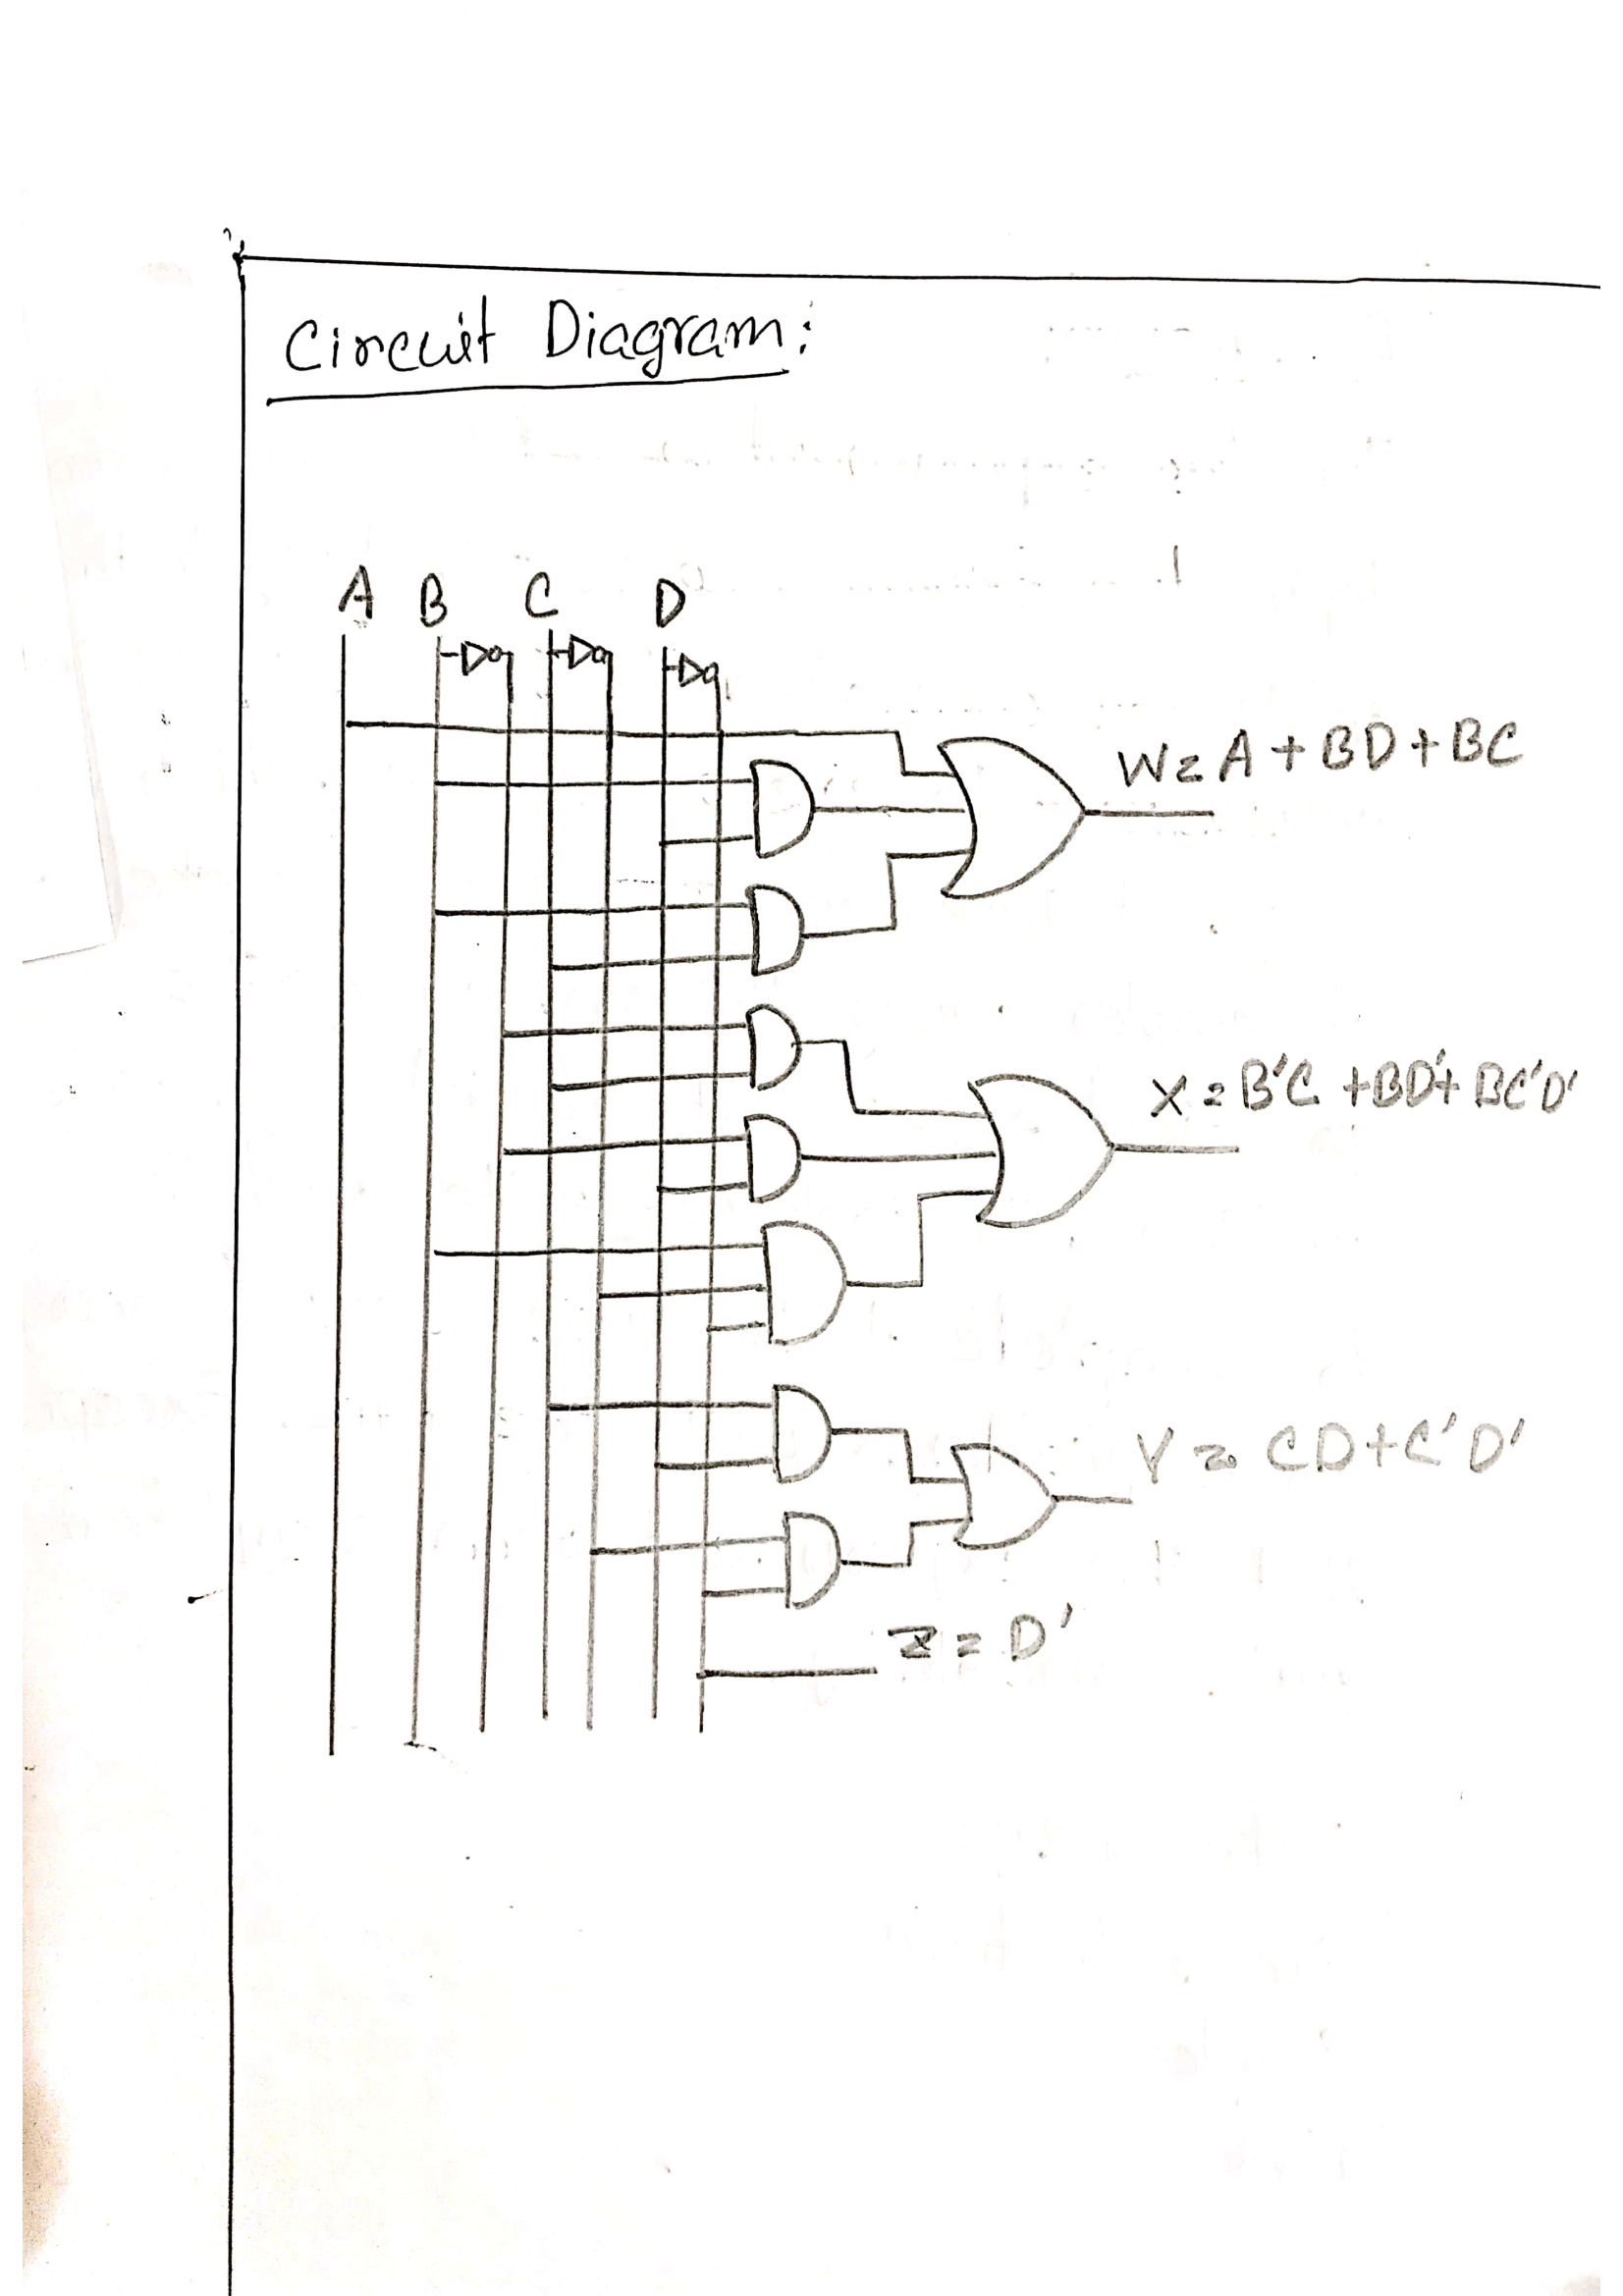 Circuit Diagram:
A B C D
W = A + BD + BC
X = B'C + BD' + BC'D'
Y = CD + C'D'
Z = D'